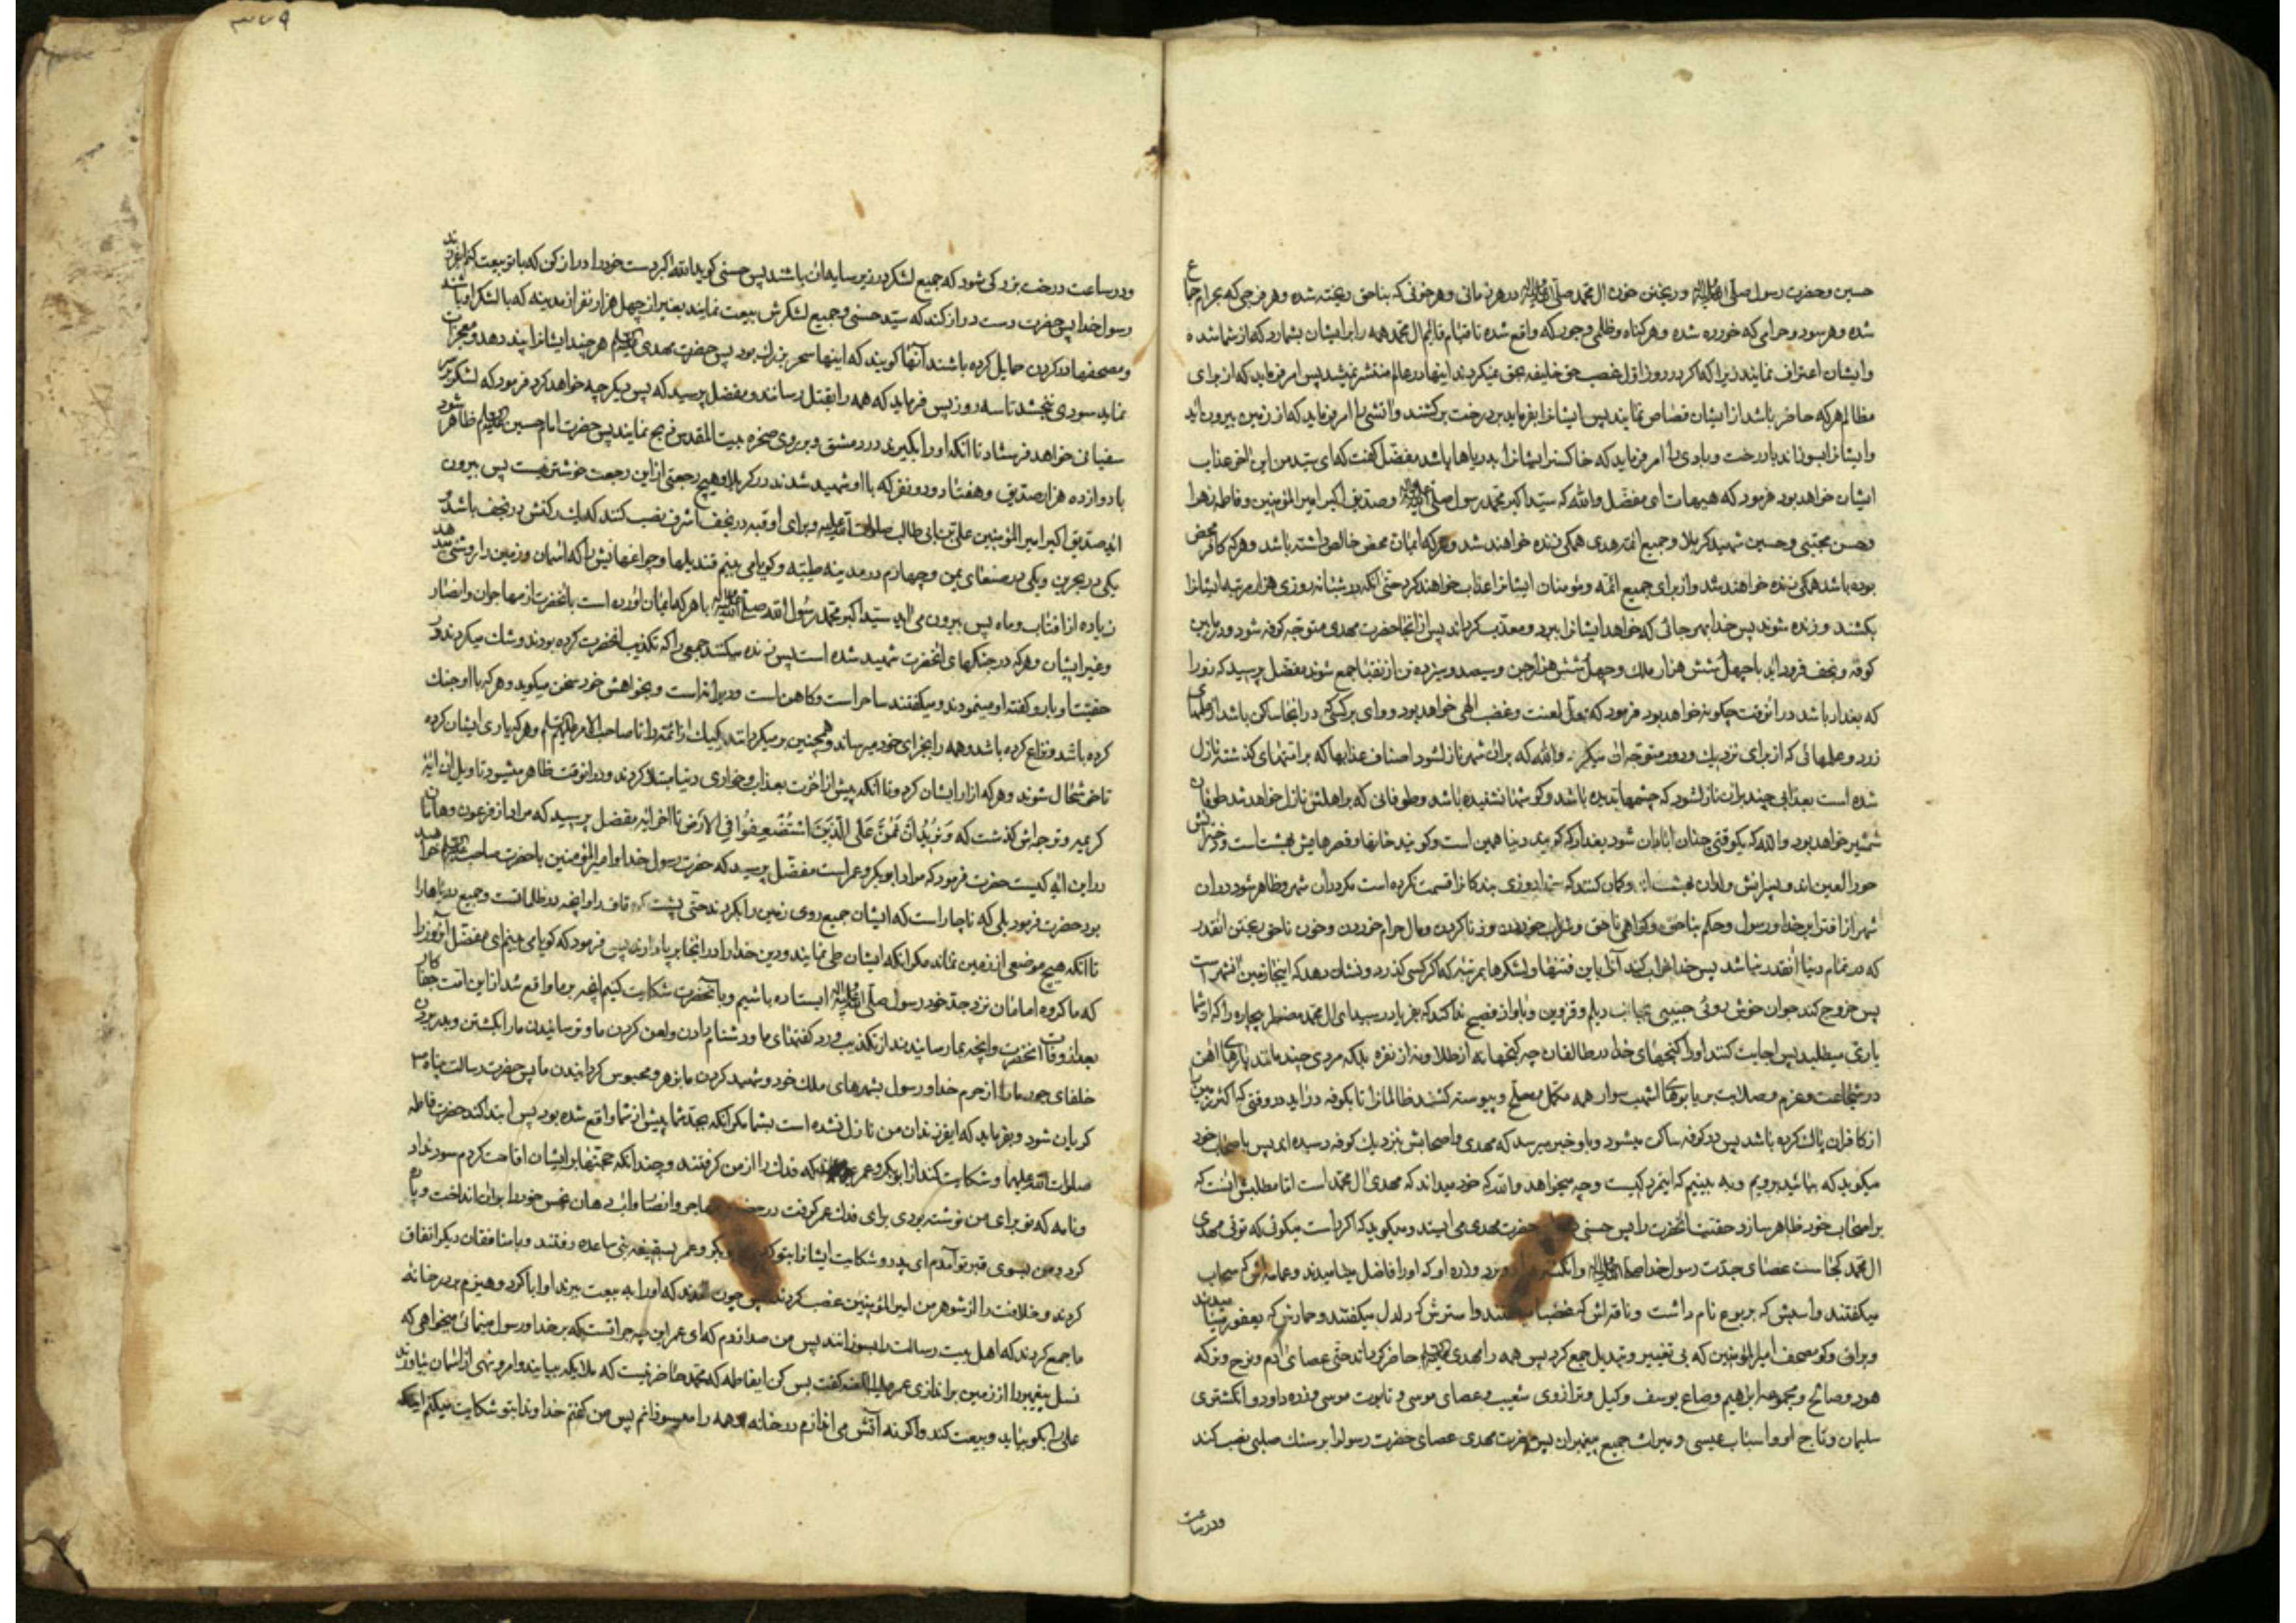 حسین و حضرت رسول صلی الله علیه و آله و ریختن خون ال محمد صلی الله علیه و آله در هر زمانی و هر خونی که بناحق ریخته شده و هر فرجی که بحرام جماع
شده و هر سود و حرامی که خورده شده و هر کناه و ظلمی و جور که واقع شده تا قیام قایم ال محمد همه را بر ایشان بشمارد که از شما شده
و ایشان اعتراف نمایند زیرا که اکر در روز اول غصب حق خلیفه بحق نمیکردند اینها در عالم منتشر نمیشد پس امر فرماید که از برای
مظالم هر که حاضر باشد از ایشان قصاص نمایند پس ایشانرا بفرماید بر درخت بر کشند و اتشی را امر فرماید که از زمین بیرون اید
و ایشانرا بسوزاند با درخت و بادی را امر فرماید که خاکستر ایشانرا بدریاها پاشد مفضل کفت که ای سید من این اخر عذاب
ایشان خواهد بود فرمود که هیهات ای مفضل والله که سید اکبر محمد رسول صلی الله علیه و آله و صدیق اکبر امیر المؤمنین و فاطمه زهرا
و حسن مجتبی و حسین شهید کربلا و جمیع ائمه هدی همکی زنده خواهند شد و هر که ایمان محض خالص داشته باشد و هر که کافر محض
بوده باشد همکی زنده خواهند شد و از برای جمیع ائمه و مؤمنان ایشانرا عذاب خواهند کرد حتی انکه در شبانه روزی هزار مرتبه ایشانرا
بکشند و زنده شوند پس خدا بهر جائی که خواهد ایشانرا ببرد و معذب کرداند پس از انجا حضرت مهدی متوجه کوفه شود و در مابین
کوفه و نجف فرود اید با چهل شش هزار ملك و چهل شش هزار جن و سیصد و سیزده تن از نقبا جمع شوند مفضل پرسید که زورا
که بغداد باشد در انوقت چکونه خواهد بود فرمود که محل لعنت و غضب الهی خواهد بود و وای بر کسی که در انجا ساکن باشد از علمهای
زرد و علمهائی که از برای نزدیك و دور متوجه ان میکردد والله که بران شهر نازل شود اصناف عذابها که بر امتهای کذشته نازل
شده است بعذابی چند بران نازل شود که چشمها ندیده باشد و کوشها نشنیده باشد و طوفانی که بر اهلش نازل خواهد شد طوفان
شمشیر خواهد بود والله که یکوقتی چنان ابادان شود بغداد که کویند دنیا همین است و کویند خانها و قصرهایش بهشت است و دخترانش
حور العین اند و پسرانش ولدان بهشت اند و کمان کنند که خدا روزی بندکانرا قسمت نکرده است مکر در ان شهر و ظاهر شود در ان
شهر از افترا بر خدا و رسول و حکم بناحق و کواهی ناحق و شراب خوردن و زنا کردن و مال حرام خوردن و خون ناحق ریختن انقدر
که در تمام دنیا انقدر نباشد پس خدا خراب کند آنرا باین فتنها و لشکرها بمرتبه که اکر کسی کذرد و نشان دهد که اینجا زمین انشهر است
پس خروج کند جوان خوش روئی حسینی بجانب دیلم و قزوین و باواز فصیح ندا کند که بفریاد رسید ای ال محمد مضطر بیچاره را که از شما
یاری میطلبد پس اجابت کنند او را کنجهای خدا در طالقان چه کنجها نه از طلا و نه از نقره بلکه مردی چند مانند پارهای اهن
در شجاعت و عزم و صلابت بر یابوهای اشهب سوار همه مکمل و مسلح و پیوسته کشند ظالمانرا تا بکوفه در اید در وقتی که اکثر زمین
از کافران پاك کرده باشد پس در کوفه ساکن میشود و باو خبر میرسد که مهدی و اصحابش بنزدیك کوفه رسیده اند پس باصحاب خود
میکوید که بیائید برویم و به بینیم که اینمرد کیست و چه میخواهد والله که خود میداند که مهدی ال محمد است اما مطلبش اینست که
بر اصحاب خود ظاهر سازد حقیت انحضرت را پس حسنی حضرت مهدی می ایستد و میکوید که اکر راست میکوئی که توئی مهدی
ال محمد کجا است عصای جدت رسول خدا صلی الله علیه و آله و انکشتر و برد و زره او که او را فاضل مینامیدند و عمامه اش که سحاب
میکفتند و اسبش که یربوع نام داشت و ناقه اش که غضبا میکفتند و استرش که دلدل میکفتند و حمارش که یعفور مینامیدند
و براق و کو مصحف امیر المؤمنین که بی تغییر و تبدیل جمع کرد پس همه را مهدی علیه السلام حاضر کرداند حتی عصای ادم و نوح و ترکه
هود و صالح و مجموعه ابراهیم و صاع یوسف و کیل و ترازوی شعیب و عصای موسی و تابوت موسی و زره داود و انکشتری
سلیمان و تاج او و اسباب عیسی و میراث جمیع پیغمبران پس حضرت مهدی عصای حضرت رسول را بر سنك صلبی نصب کند
و در ساعت
۳۷۹
و در ساعت درخت بزرکی شود که جمیع لشکر در زیر سایه ان باشند پس حسنی کوید الله اکبر دست خود را دراز کن که با تو بیعت کنم ایفرزند
رسول خدا پس حضرت دست دراز کند که سید حسنی و جمیع لشکرش بیعت نمایند بغیر از چهل هزار نفر از مدینه که با لشکر او باشند
و مصحفها در کردن حمایل کرده باشند آنها کویند که اینها سحر بزرك بود پس حضرت مهدی علیه السلام هر چند ایشانرا پند دهد و معجزات
نماید سودی نبخشد تا سه روز پس فرماید که همه را بقتل رسانند و مفضل پرسید که پس دیکر چه خواهد کرد فرمود که لشکر بر سر
سفیانی خواهد فرستاد تا انکه او را بکیرند در دمشق و بر روی صخره بیت المقدس ذبح نمایند پس حضرت امام حسین علیه السلام ظاهر شود
با دوازده هزار صدیق و هفتاد و دو نفر که با او شهید شدند در کربلا و هیچ رجعتی از این رجعت خوشتر نیست پس بیرون
اید صدیق اکبر امیر المؤمنین علی بن ابی طالب صلوات الله علیه و برای او قبه در نجف اشرف نصب کنند که یك رکنش در نجف باشد و
یکی در بحرین و یکی در صنعای یمن و چهارم در مدینه طیبه و کویا می بینم قندیلها و چراغهایش را که اسمان و زمین را روشنی میدهد
زیاده از افتاب و ماه پس بیرون می اید سید اکبر محمد رسول الله صلی الله علیه و آله با هر که ایمان اورده است بانحضرت از مهاجران و انصار
و غیر ایشان و هر که در جنکهای انحضرت شهید شده است پس زنده میکنند جمعی را که تکذیب انحضرت کرده بودند و شك میکردند در
حقیت او یا رد کفته او مینمودند و میکفتند ساحر است و کاهن است و دیوانه است و بخواهش خود سخن میکوید و هر که با او جنك
کرده باشد و نزاع کرده باشد و همه را بجزای خود میرساند و همچنین بر میکردانند یکیك از ائمه را تا صاحب الامر علیهم السلام و هر که یاری ایشان کرده
تا خوشحال شوند و هر که ازار ایشان کرده تا انکه پیش از اخرت بعذاب و خواری دنیا مبتلا کردند و در انوقت ظاهر میشود تاویل ان ایۀ
کریمه و ترجمه اش کذشت که وَنُرِیدُ اَنْ نَمُنَّ عَلَی الَّذِینَ اسْتُضْعِفُوا فِی الْاَرْضِ تا اخر ایه مفضل پرسید که مراد از فرعون و هامان
در این ایه کیست حضرت فرمود که مراد ابوبکر و عمر است مفضل پرسید که حضرت رسول خدا و امیر المؤمنین با حضرت صاحب علیه السلام خواهند
بود حضرت فرمود بلی که ناچار است که ایشان جمیع روی زمین را بکردند حتی پشت کوه قاف را و انچه در ظلماتست و جمیع دریاها را
تا انکه هیچ موضعی از زمین نماند مکر انکه ایشان طی نمایند و دین خدا را در انجا بر پا دارند پس فرمود که کویا می بینم ای مفضل آنروز را
که ما کروه امامان نزد جد خود رسول صلی الله علیه و آله ایستاده باشیم و بآنحضرت شکایت کنیم انچه بر ما واقع شد از این امت جفا کار
بعد از وفات انحضرت و انچه بما رسانیدند از تکذیب و رد کفتهای ما و دشنام دادن و لعن کردن ما و ترسانیدن ما را بکشتن و بدر بردن
خلفای جور ما را از حرم خدا و رسول بشهرهای ملك خود و شهید کردن ما بزهر و محبوس کردانیدن ما پس حضرت رسالت پناه ص
کریان شود و بفرماید که ایفرزندان من نازل نشده است بشما مکر انکه بجد شما پیش از شما واقع شده بود پس ابتدا کند حضرت فاطمه
صلوات الله علیها و شکایت کند از ابوبکر و عمر که فدك را از من کرفتند و چندانکه حجتها بر ایشان اقامت کردم سود نداد
و نامه که تو برای من نوشته بودی برای فدك عمر کرفت در حضور مهاجر و انصار و اب دهان نجس خود را بران انداخت و پاره
کرد و من بسوی قبر تو آمدم ای پدر و شکایت ایشانرا بتو کردم ابوبکر و عمر بسقیفه بنی ساعده رفتند و با منافقان دیکر اتفاق
کردند و خلافت را از شوهر من امیر المؤمنین غصب کردند پس چون امدند که او را به بیعت برند او ابا کرد و هیزم بر در خانه
ما جمع کردند که اهل بیت رسالت را بسوزانند پس من صدا زدم که ای عمر این چه جرأتست که بر خدا و رسول مینمائی میخواهی که
نسل پیغمبر را از زمین براندازی عمر علیه اللعنه کفت بس کن ایفاطمه که محمد حاضر نیست که ملائکه بیایند و امر و نهی از اسمان بیاورند
علی را بکو بیاید و بیعت کند و اکر نه آتش می اندازم در خانه و همه را میسوزانم پس من کفتم خداوندا بتو شکایت میکنم اینکه